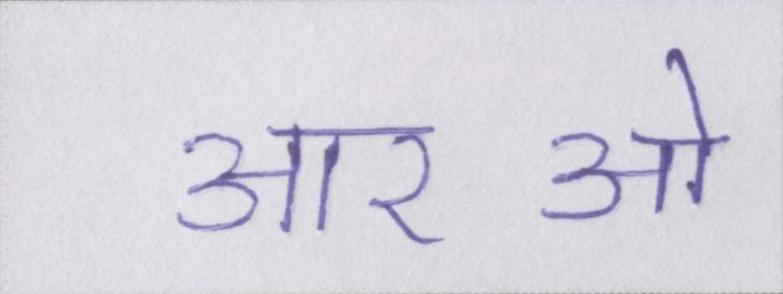 आर ओ